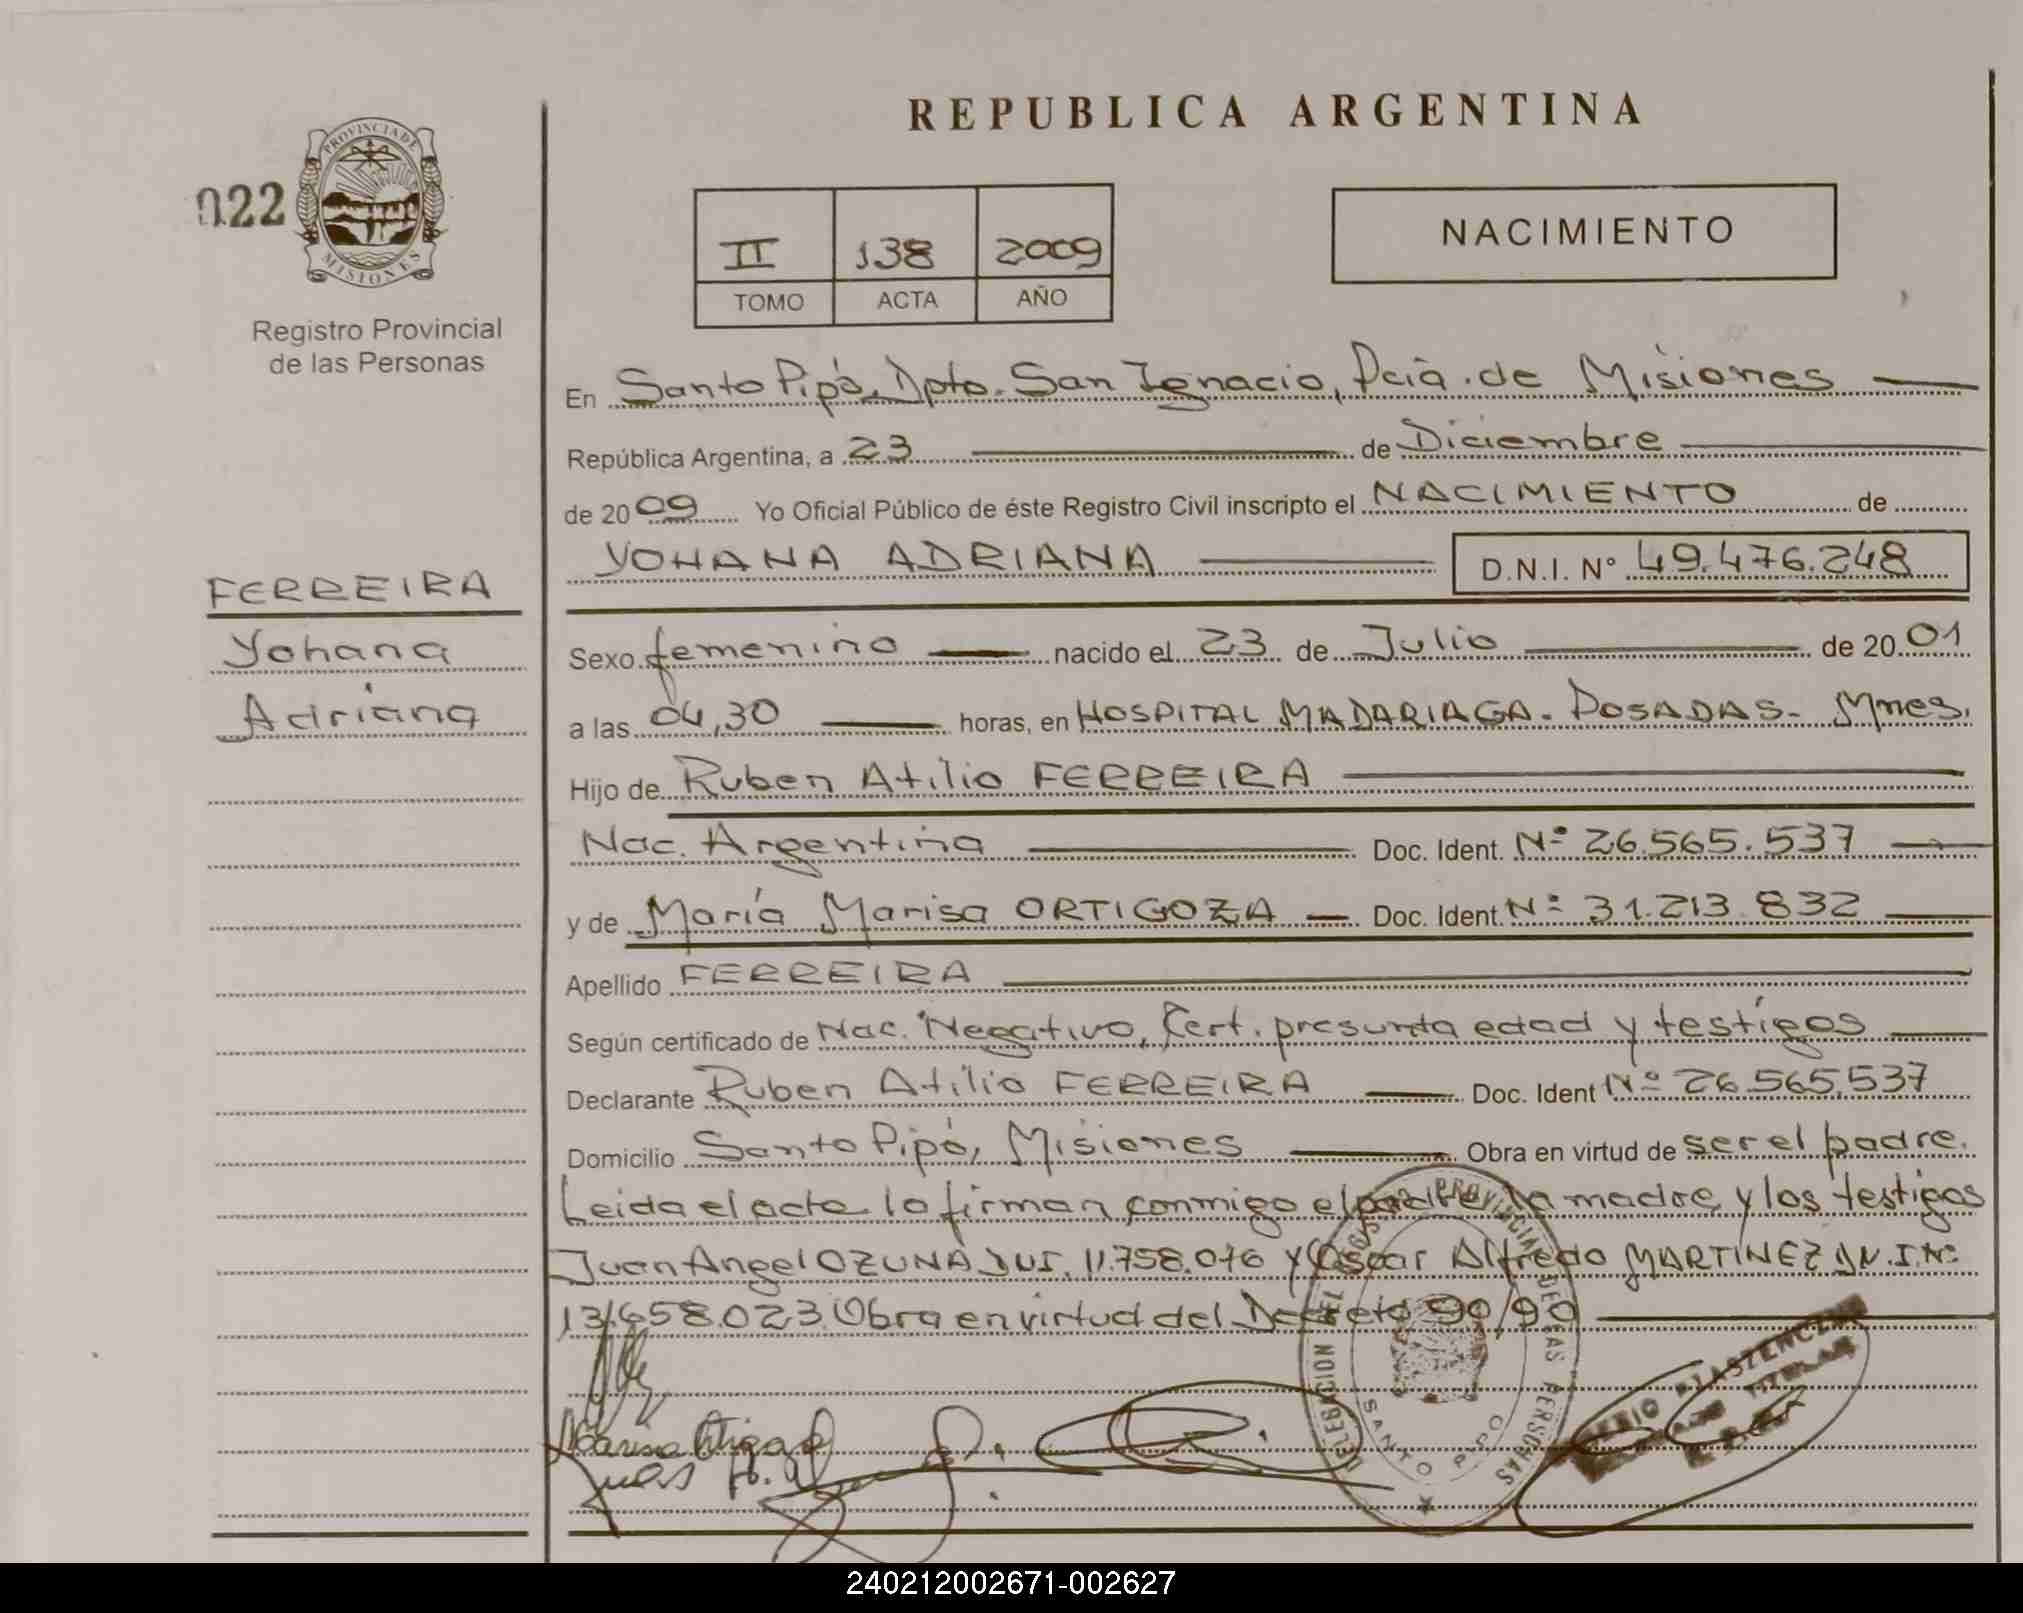 REPUBLICA ARGENTINA
022
PROVINCIA DE
MISIONES
Registro Provincial
de las Personas
II 138 2009
TOMO ACTA AÑO
NACIMIENTO
En Santo Pipó, Dpto. San Ignacio, Pcia. de Misiones
República Argentina, a 23 de Diciembre
de 2009 Yo Oficial Público de éste Registro Civil inscripto el NACIMIENTO de
YOHANA ADRIANA D.N.I. N° 49.476.248
FERREIRA
Yohana
Adriana
Sexo femenino nacido el 23 de Julio de 2001
a las 04,30 horas, en HOSPITAL MADARIAGA - POSADAS - Mnes.
Hijo de Ruben Atilio FERREIRA
Nac. Argentina Doc. Ident. Nº 26.565.537
y de María Marisa ORTIGOZA Doc. Ident. Nº 31.213.832
Apellido FERREIRA
Según certificado de Nac. Negativo, Cert. presunta edad y testigos
Declarante Ruben Atilio FERREIRA Doc. Ident Nº 26.565.537
Domicilio Santo Pipó, Misiones Obra en virtud de ser el padre.
Leida el acta la firman conmigo el padre la madre y los testigos
Juan Angel OZUNA DNI. 11.758.076 y Oscar Alfredo MARTINEZ D.N.I. Nº
13.658.023. Obra en virtud del Decreto 90/90
DELEGACION DEL REGISTRO PROVINCIAL DE LAS PERSONAS
SANTO PIPO
240212002671-002627